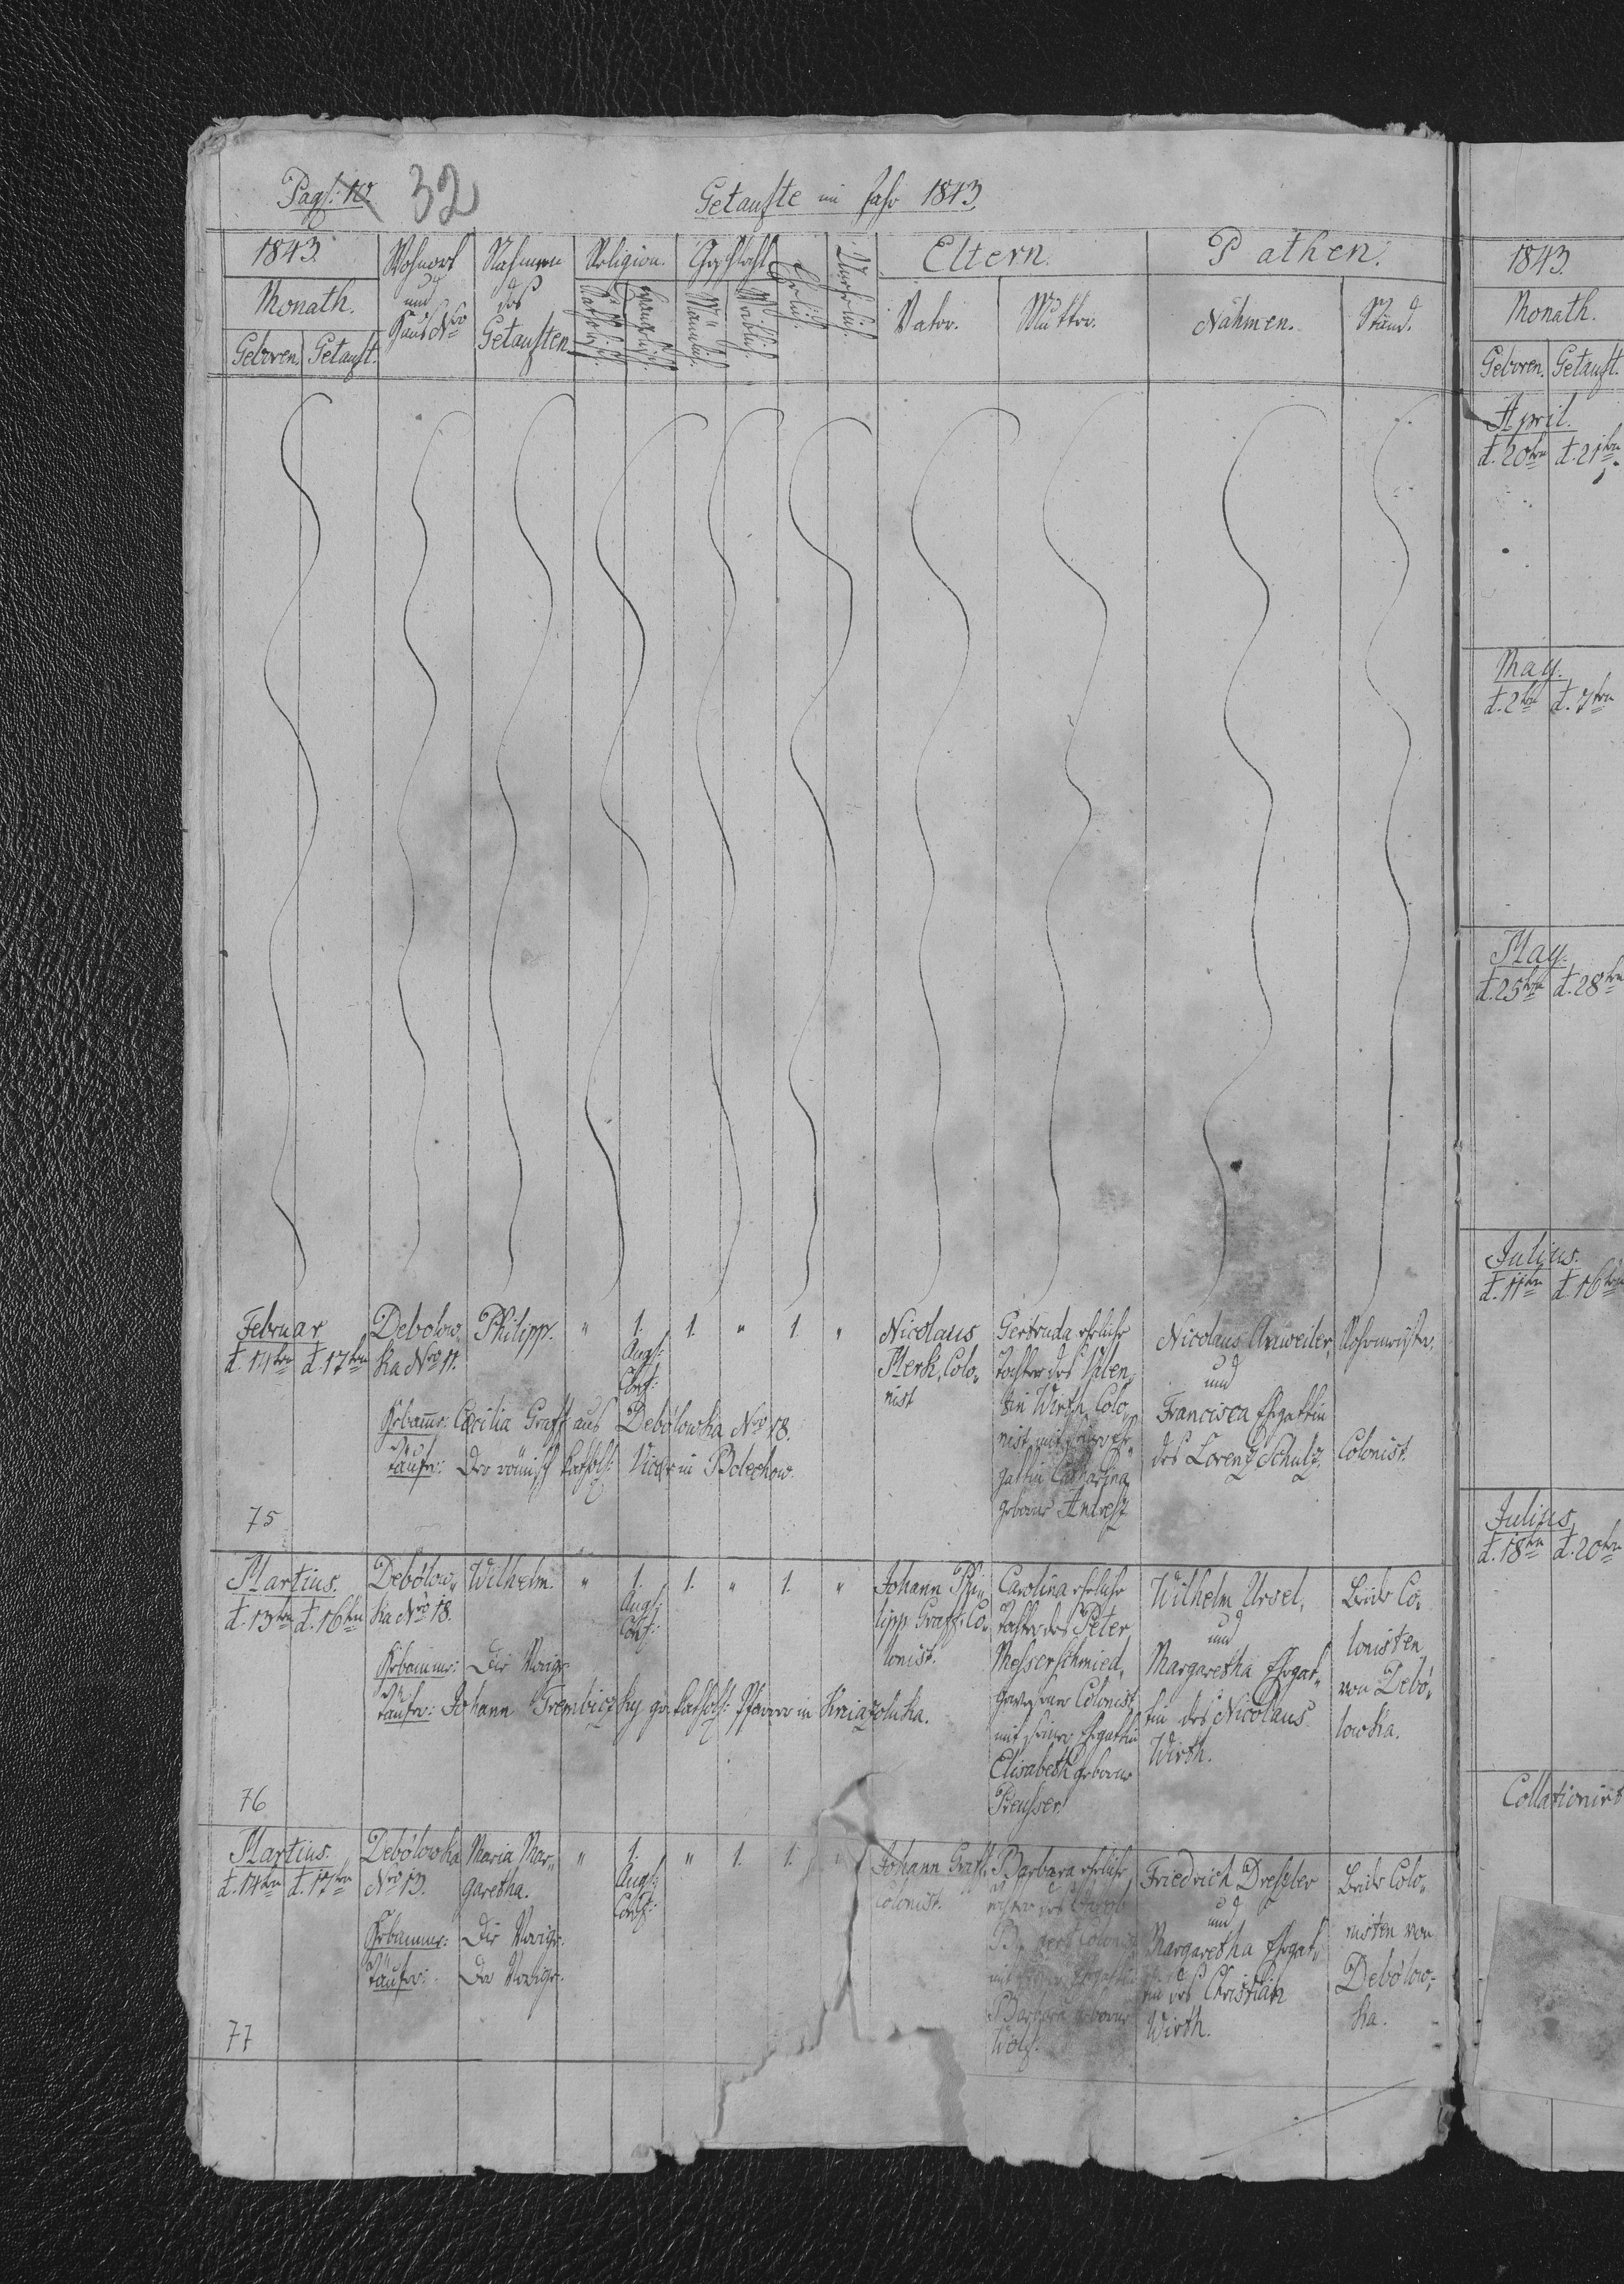 Pag: 10. 32
Getaufte im Jahr 1843.
1843.
Monath.
Geboren. Getauft.
Wohnort
und
Haus Nro
Nahmen
des
Getauften
Religion.
Katholisch.
Evangelisch.
Geschlecht
Mänlich.
Weiblich.
Ehelich.
Unehelich.
Eltern.
Vater. Mutter.
Pathen.
Nahmen. Stand.
Februar
d. 14ten d. 17ten
Debolow,
ka Nro 11.
Philipp.
" 1. 1. " 1. "
Augs:
Conf:
Nicolaus
Merk, Colo„
nist
Gertruda eheliche
Tochter des Valen„
tin Wirth, Colo„
nist mit seiner Ehe„
gattin Catharina
geborne Andres
Nicolaus Anweiler,
und
Francisca Ehegattin
des Lorenz Schulz.
Colonist.
Hebame: Cäcilia Graff aus Debólowka Nro 18.
Täufer: Der römisch kathol: Vicar in Bolechow.
75
Martius.
d. 13ten d. 16ten
Debólow„
ka Nro 18.
Wilhelm.
" 1. 1. " 1. "
Augs:
Conf:
Johann Phi„
lipp Graff, Co„
lonist.
Carolina eheliche
Tochter des Peter
Messerschmied,
gewesener Colonist
mit seiner Ehegattin
Elisabeth geborne
Preusser.
Wilhelm Ursel,
und
Margaretha Ehegat„
tin des Nicolaus
Wirth.
Beide Co„
lonisten
von Debó„
lowka.
Hebamme: Die Vorige.
Täufer: Johann Trembiczky gr. kathol: Pfarrer in Kniazoluka.
76
Martius.
d. 14ten d. 17ten
Debólowka
Nro 13.
Maria Mar„
garetha.
" 1. " 1. 1. "
Augs:
Conf:
Johann Graff,
Colonist.
Barbara eheliche
Tochter des Jacob
mit seiner Ehegattin
Barbara geborne
Wolf.
Friedrich Dressler
und
Margaretha Ehegat„
tin des Christian
Wirth.
Beide Colo„
nisten von
Debólow„
ka.
Hebamme: Die Vorige.
Täufer: Der Vorige.
77
1843.
Monath.
Geboren. Getauft.
April.
d. 20ten d. 21ten
May.
d. 2ten d. 7ten
May.
d. 25ten d. 28ten
Julius.
d. 11ten d. 16ten
Julius
d. 18ten d. 20ten
Collationirt